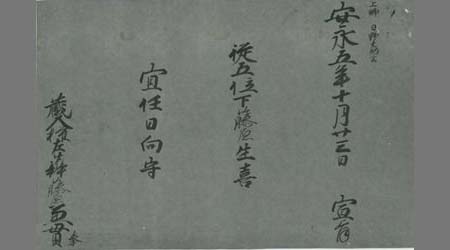 上卿 日野大納言
安永五年十月廿三日 宣旨
従五位下藤原生喜
宜任日向守
蔵人頭左中辨藤原 奉